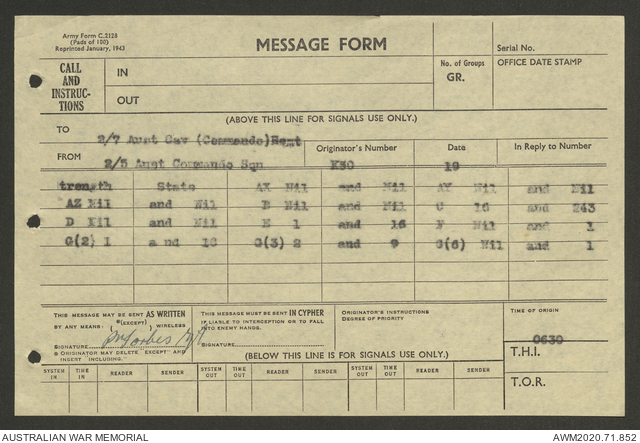 Army Form C.2128
(Pads of 100)
Reprinted January, 1943
MESSAGE FORM
Serial No.
CALL
AND
INSTRUC-
TIONS
IN
OUT
No. of Groups
GR.
OFFICE DATE STAMP
(ABOVE THIS LINE FOR SIGNALS USE ONLY.)
TO
2/7 Aust Cav (Commando) Regt
FROM
2/5 Aust Commando Sqn
Originator's Number
K30
Date
19
In Reply to Number
trength State AX Nil and Nil AY Nil and Nil
AZ Nil and Nil B Nil and Nil C 16 and 243
D Nil and Nil E 1 and 16 F Nil and 1
G(2) 1 and 16 G(3) 2 and 9 G(6) Nil and 1
THIS MESSAGE MAY BE SENT AS WRITTEN
BY ANY MEANS (EXCEPT) WIRELESS
SIGNATURE
ORIGINATOR MAY DELETE "EXCEPT" AND
INSERT "INCLUDING."
THIS MESSAGE MUST BE SENT IN CYPHER
IF LIABLE TO INTERCEPTION OR TO FALL
INTO ENEMY HANDS.
SIGNATURE
ORIGINATOR'S INSTRUCTIONS
DEGREE OF PRIORITY
TIME OF ORIGIN
0630
T.H.I.
T.O.R.
(BELOW THIS LINE IS FOR SIGNALS USE ONLY.)
SYSTEM IN TIME IN READER SENDER SYSTEM OUT TIME OUT READER SENDER SYSTEM OUT TIME OUT READER SENDER
AUSTRALIAN WAR MEMORIAL
AWM2020.71.852